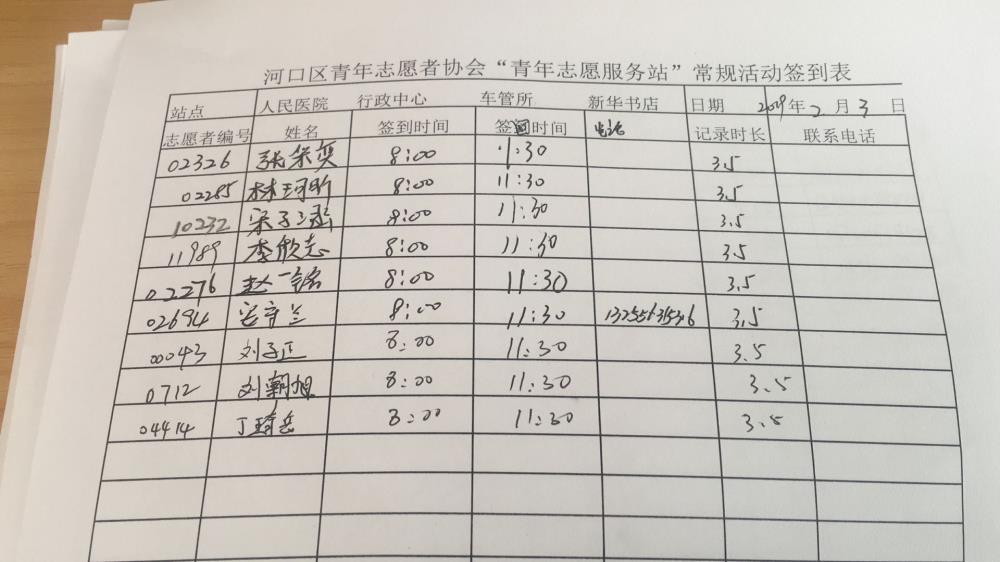 河口区青年志愿者协会“青年志愿服务站”常规活动签到表
站点 人民医院 行政中心 车管所 新华书店 日期 2019年2月3日
志愿者编号 姓名 签到时间 签回时间 电话 记录时长 联系电话
02326 张荣奕 8:00 11:30 3.5
02285 林珂昕 8:00 11:30 3.5
10232 宋子 8:00 11:30 3.5
11989 李欣志 8:00 11:30 3.5
02276 赵一铭 8:00 11:30 3.5
02694 安守兰 8:00 11:30 3.5
00043 刘子正 8:00 11:30 3.5
0712 刘朝旭 8:00 11:30 3.5
04414 丁琦岳 8:00 11:30 3.5